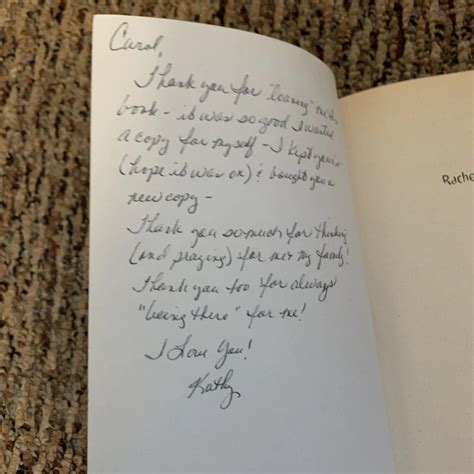 Carol,
Thank you for "loaning" me this
book - it was so good I wanted
a copy for myself - I kept yours
(hope it was ok) & bought you a
new copy -
Thank you so much for thinking
(and praying) for me & my family!
Thank you too for always
"being there" for me!
I Love You!
Kathy
Rache